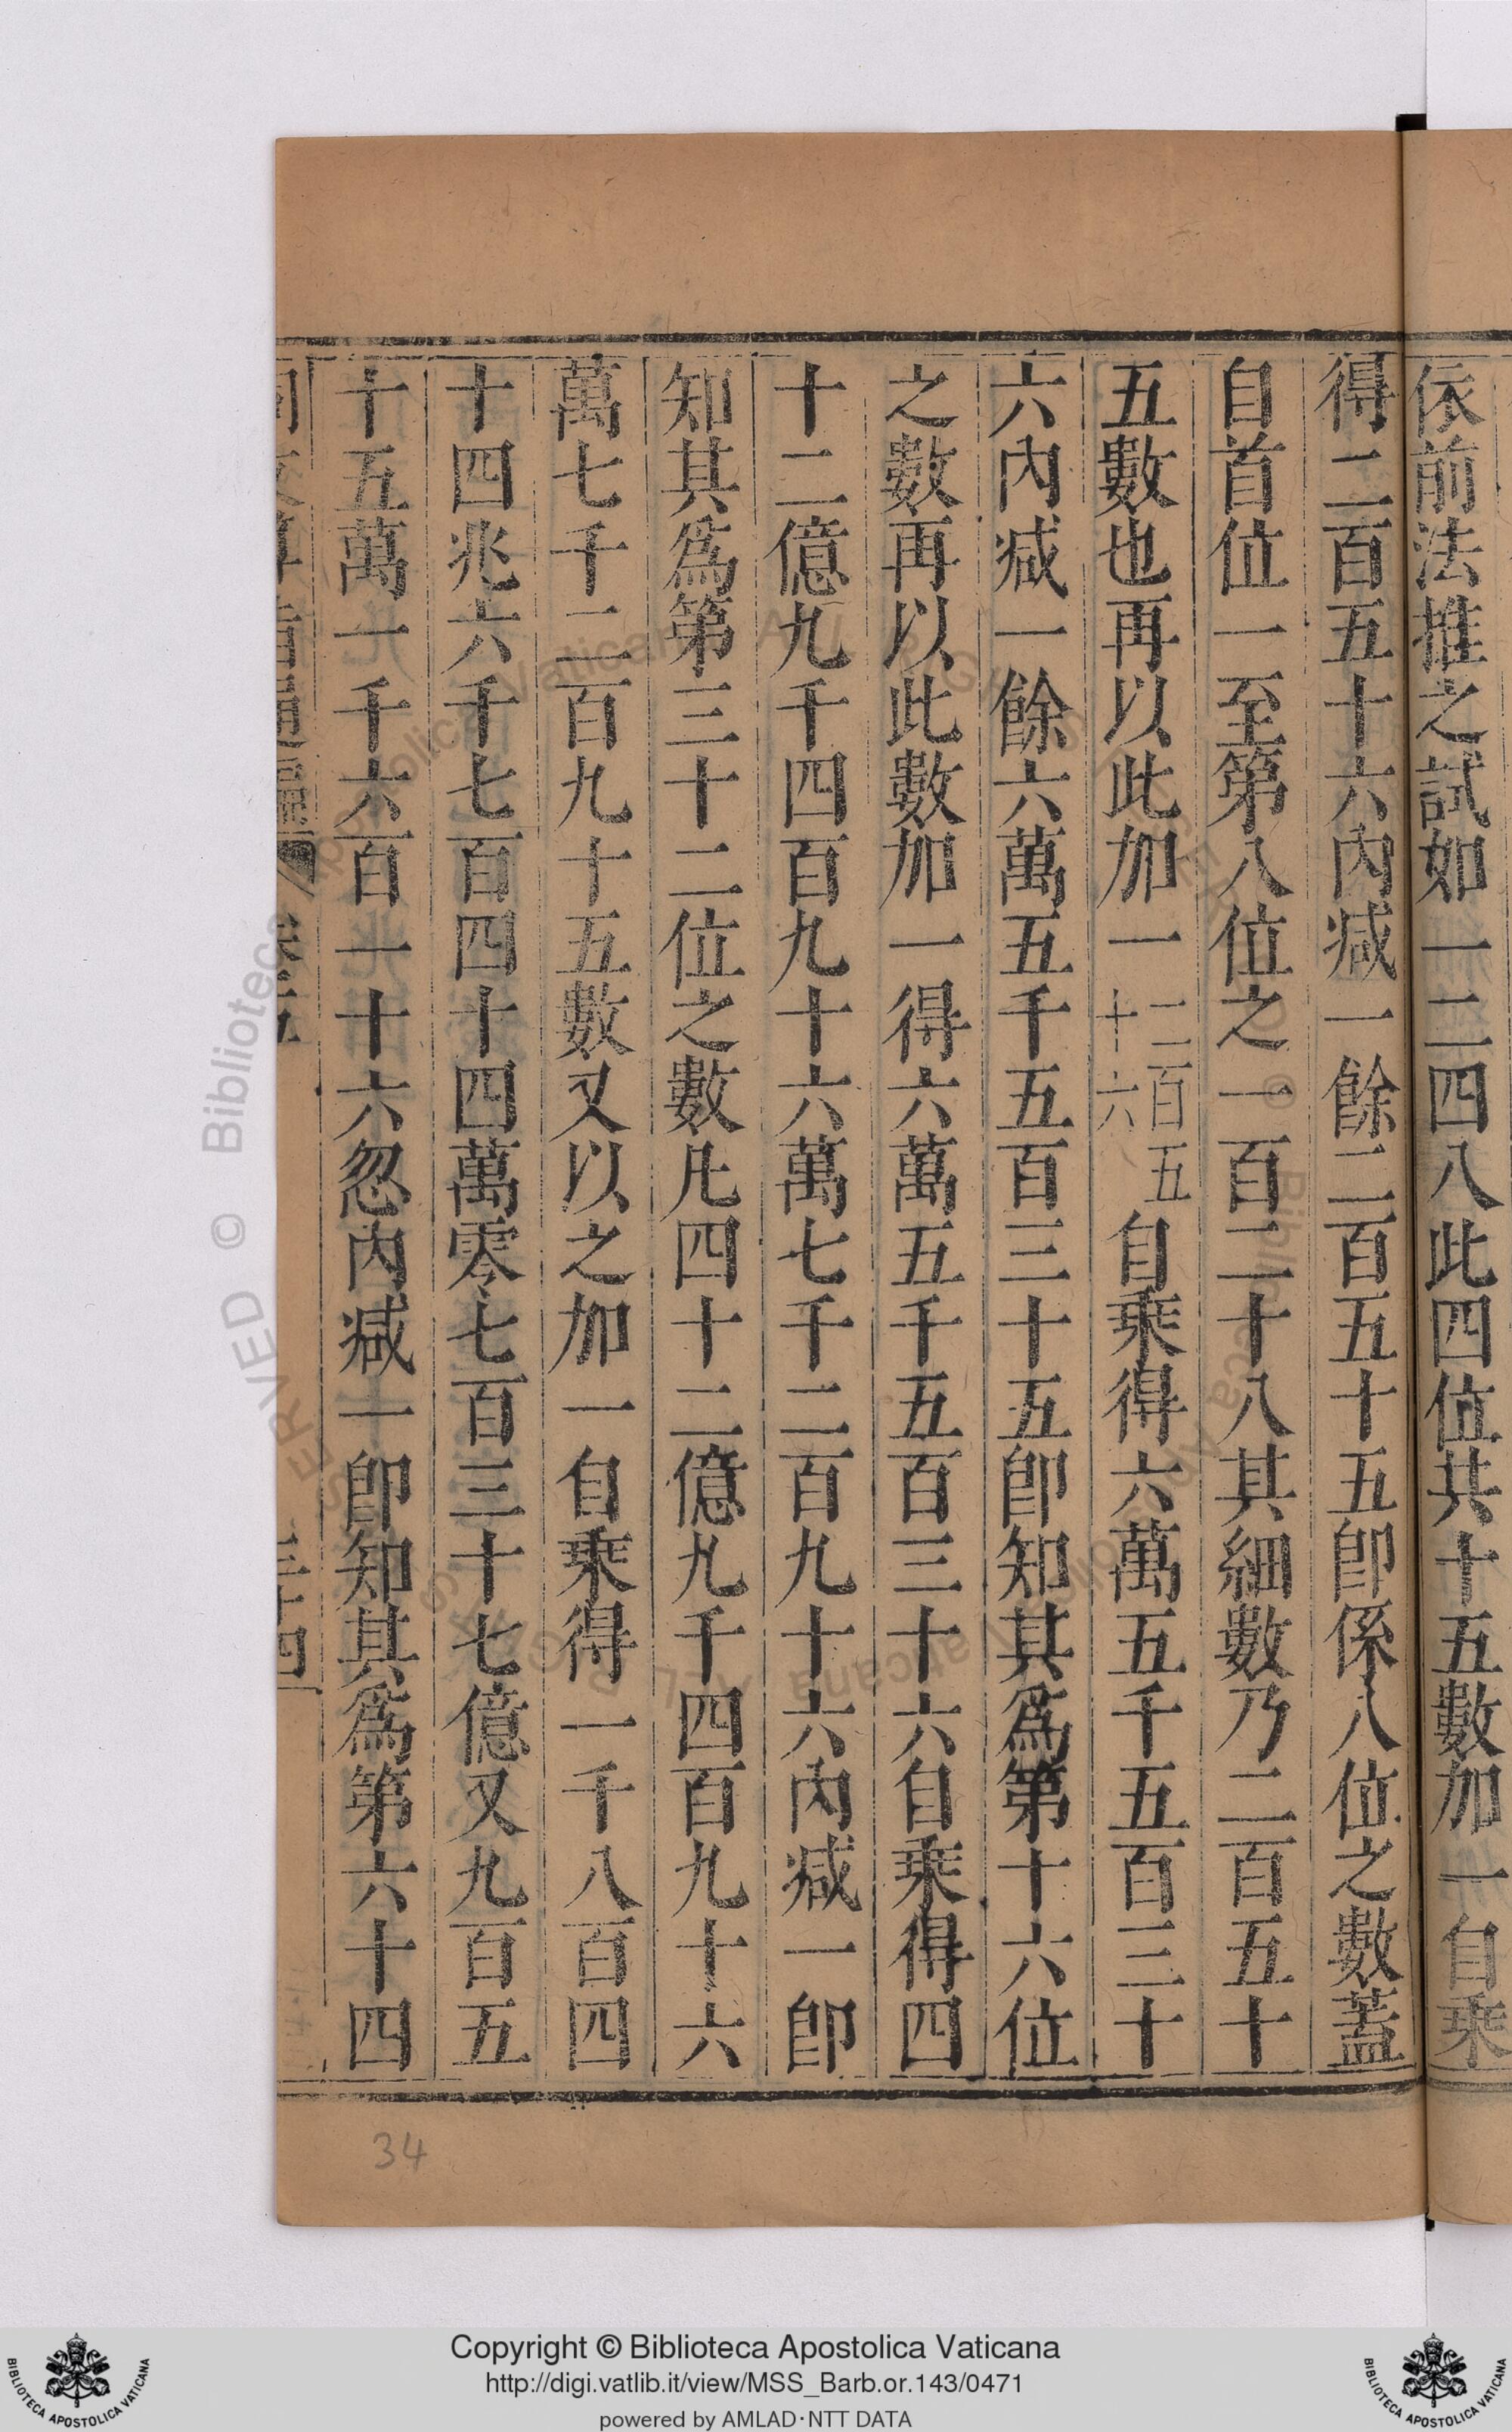 依前法推之試如一二四八此四位共十五數加一自乘
得二百五十六內减一餘二百五十五卽係八位之數蓋
自首位一至第八位之一百二十八其細數乃二百五十
五數也再以此加一二百五十六自乘得六萬五千五百三十
六內减一餘六萬五千五百三十五卽知其爲第十六位
之數再以此數加一得六萬五千五百三十六自乘得四
十二億九千四百九十六萬七千二百九十六內减一卽
知其爲第三十二位之數凡四十二億九千四百九十六
萬七千二百九十五數又以之加一自乘得一千八百四
十四兆六千七百四十四萬零七百三十七億又九百五
十五萬一千六百一十六忽內减一卽知其爲第六十四
34
© Biblioteca Apostolica Vaticana
Copyright © Biblioteca Apostolica Vaticana
http://digi.vatlib.it/view/MSS_Barb.or.143/0471
powered by AMLAD·NTT DATA
BIBLIOTECA APOSTOLICA VATICANA
BIBLIOTECA APOSTOLICA VATICANA